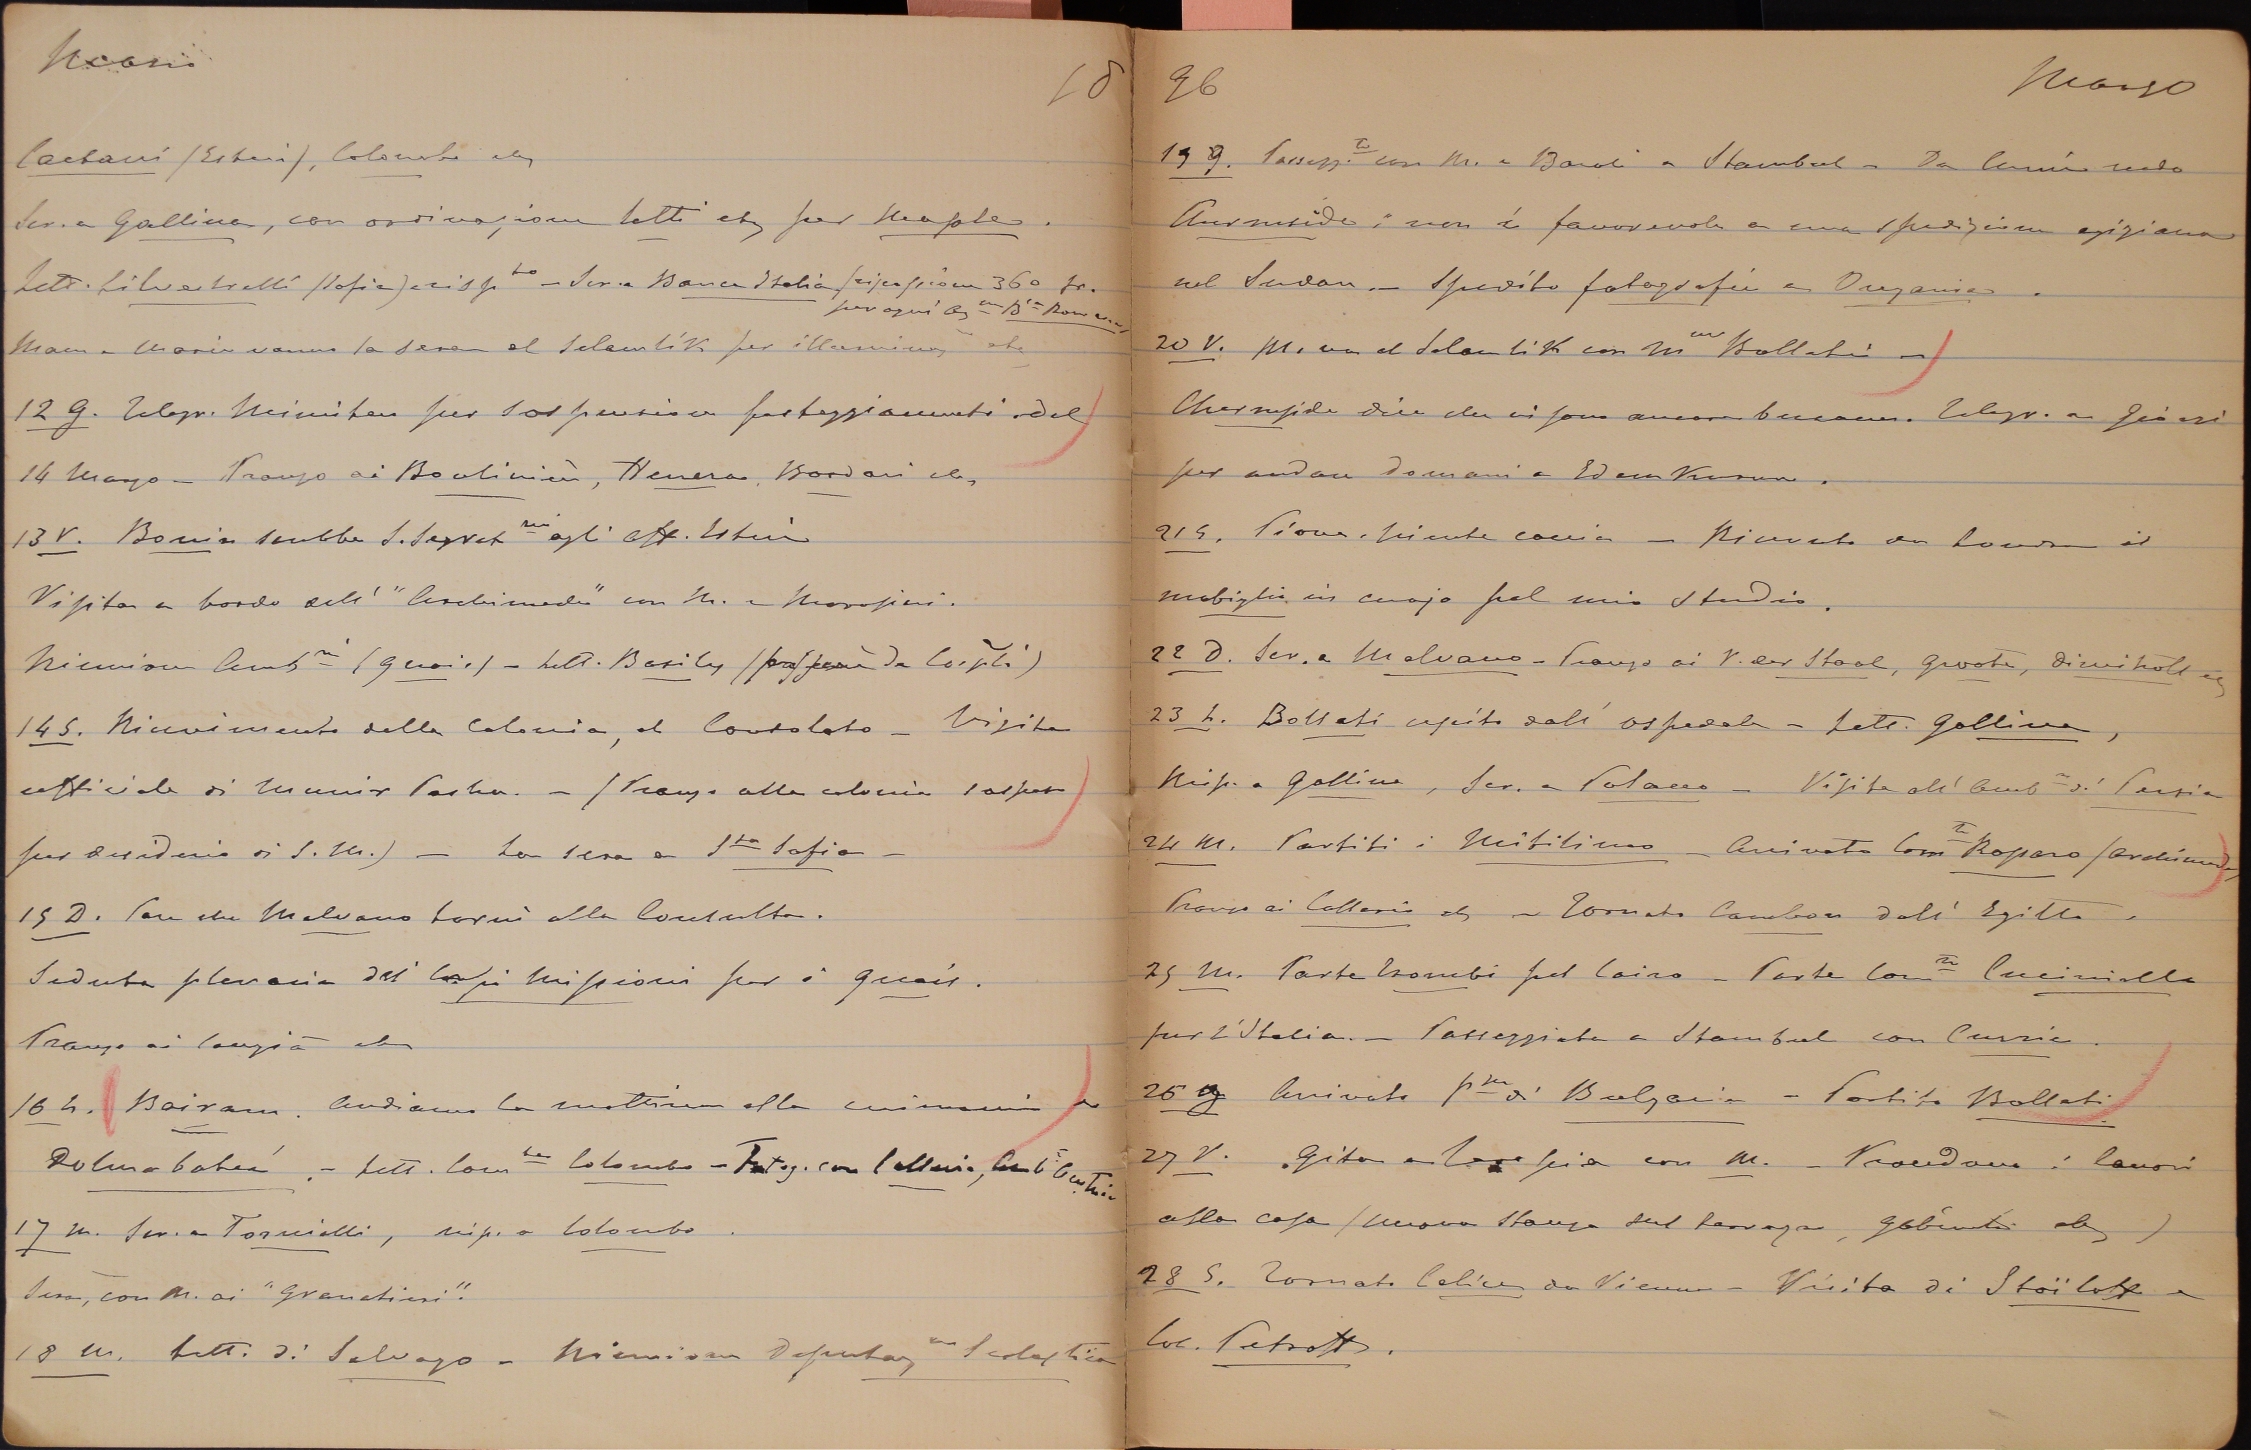 Marzo
18
Caetani (Esteri), Colombo etc
Scr. a Gallina, con ordinazione letti etc per Maple.
Lett. Silvestrelli (Sofia) e risp.ta – Scr. a Banca Italia (riscossione 360 fr.
per ogni
Mam. e Maria vanno la sera al Selamlik per illuminaz. etc
12 G. Telegr. Ministero per sospensione festeggiamenti del
14 Marzo – Pranzo ai Boulinière, Bordari etc
13 V. Bonin sarebbe S. Segret.rio agli Aff. Esteri
Visita a bordo dell' "Archimede" con M. e Morosini.
Riunione Amb.ri (quais) – Lett. Basily
14 S. Ricevimento della Colonia, al Consolato – Visita
ufficiale di Munir Pasha. – (Pranzo alla colonia sospeso
per desiderio di S. M.) – La sera a S.ta Sofia –
15 D. Pare che Malvano torni alla Consulta.
Seduta plenaria dei Capi Missioni per i quais.
Pranzo ai etc
16 L. Bairam. Andiamo la mattina alla cerimonia a
Dolmabatcé. – Lett. Com.te Colombo – Fotog. con Calleria, Amb. Austria
17 M. Scr. a Tornielli, risp. a Colombo.
Sera, con M. ai "Granatieri".
18 M. Lett. di Salvago – Riunione Deputaz.ne Scolastica
96
Marzo
19 G. Passegg.ta con M. e Baroli a Stambul – Da Currie vedo
Chermside: non è favorevole a una spedizione egiziana
nel Sudan. – Spedito fotografie a
20 V. M. va al Selamlik con M.me Bollati –
Chermside dice che vi sono ancora beccacce. Telegr. a
per andare domani a
21 S. Piove, niente caccia – Ricevuto da Londra il
mobiglio in cuojo pel mio studio.
22 D. Scr. a Malvano – Pranzo ai V. der Staal, Groote, Dimitroff etc
23 L. Bollati uscito dall' ospedale – Lett. Gallina,
Risp. a Gallina, Scr. a Polacco – Visita all' Amb.re di Persia
24 M. Partiti i Mitilineo – Arrivato Com.te Rosparo (Archimede)
Pranzo ai Calleria etc – Tornato Cambon dall' Egitto.
25 M. Parte Trombi pel Cairo – Parte Com.te Cucinella
per l'Italia. – Passeggiata a Stambul con Currie.
26 G Arrivato P.pe di Bulgaria – Partito Bollati.
27 V. Gita a Terapia con M. – Procedono i lavori
alla casa (nuova stanza sul terrazzo, gabinetti etc)
28 S. Tornato Calice da Vienna – Visita di Stoïloff e
Col. Petroff.